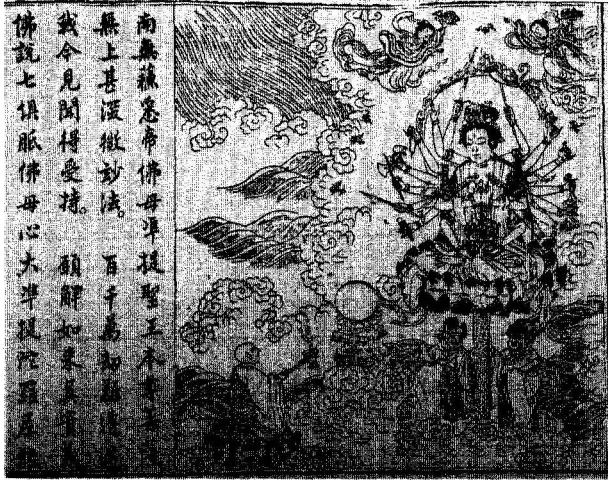 南無蘓悉帝佛母準提聖王本尊
無上甚深微妙法。 百千萬劫難遭
我今見聞得受持。 願解如来真實
佛說七俱胝佛母心大準提陀羅尼